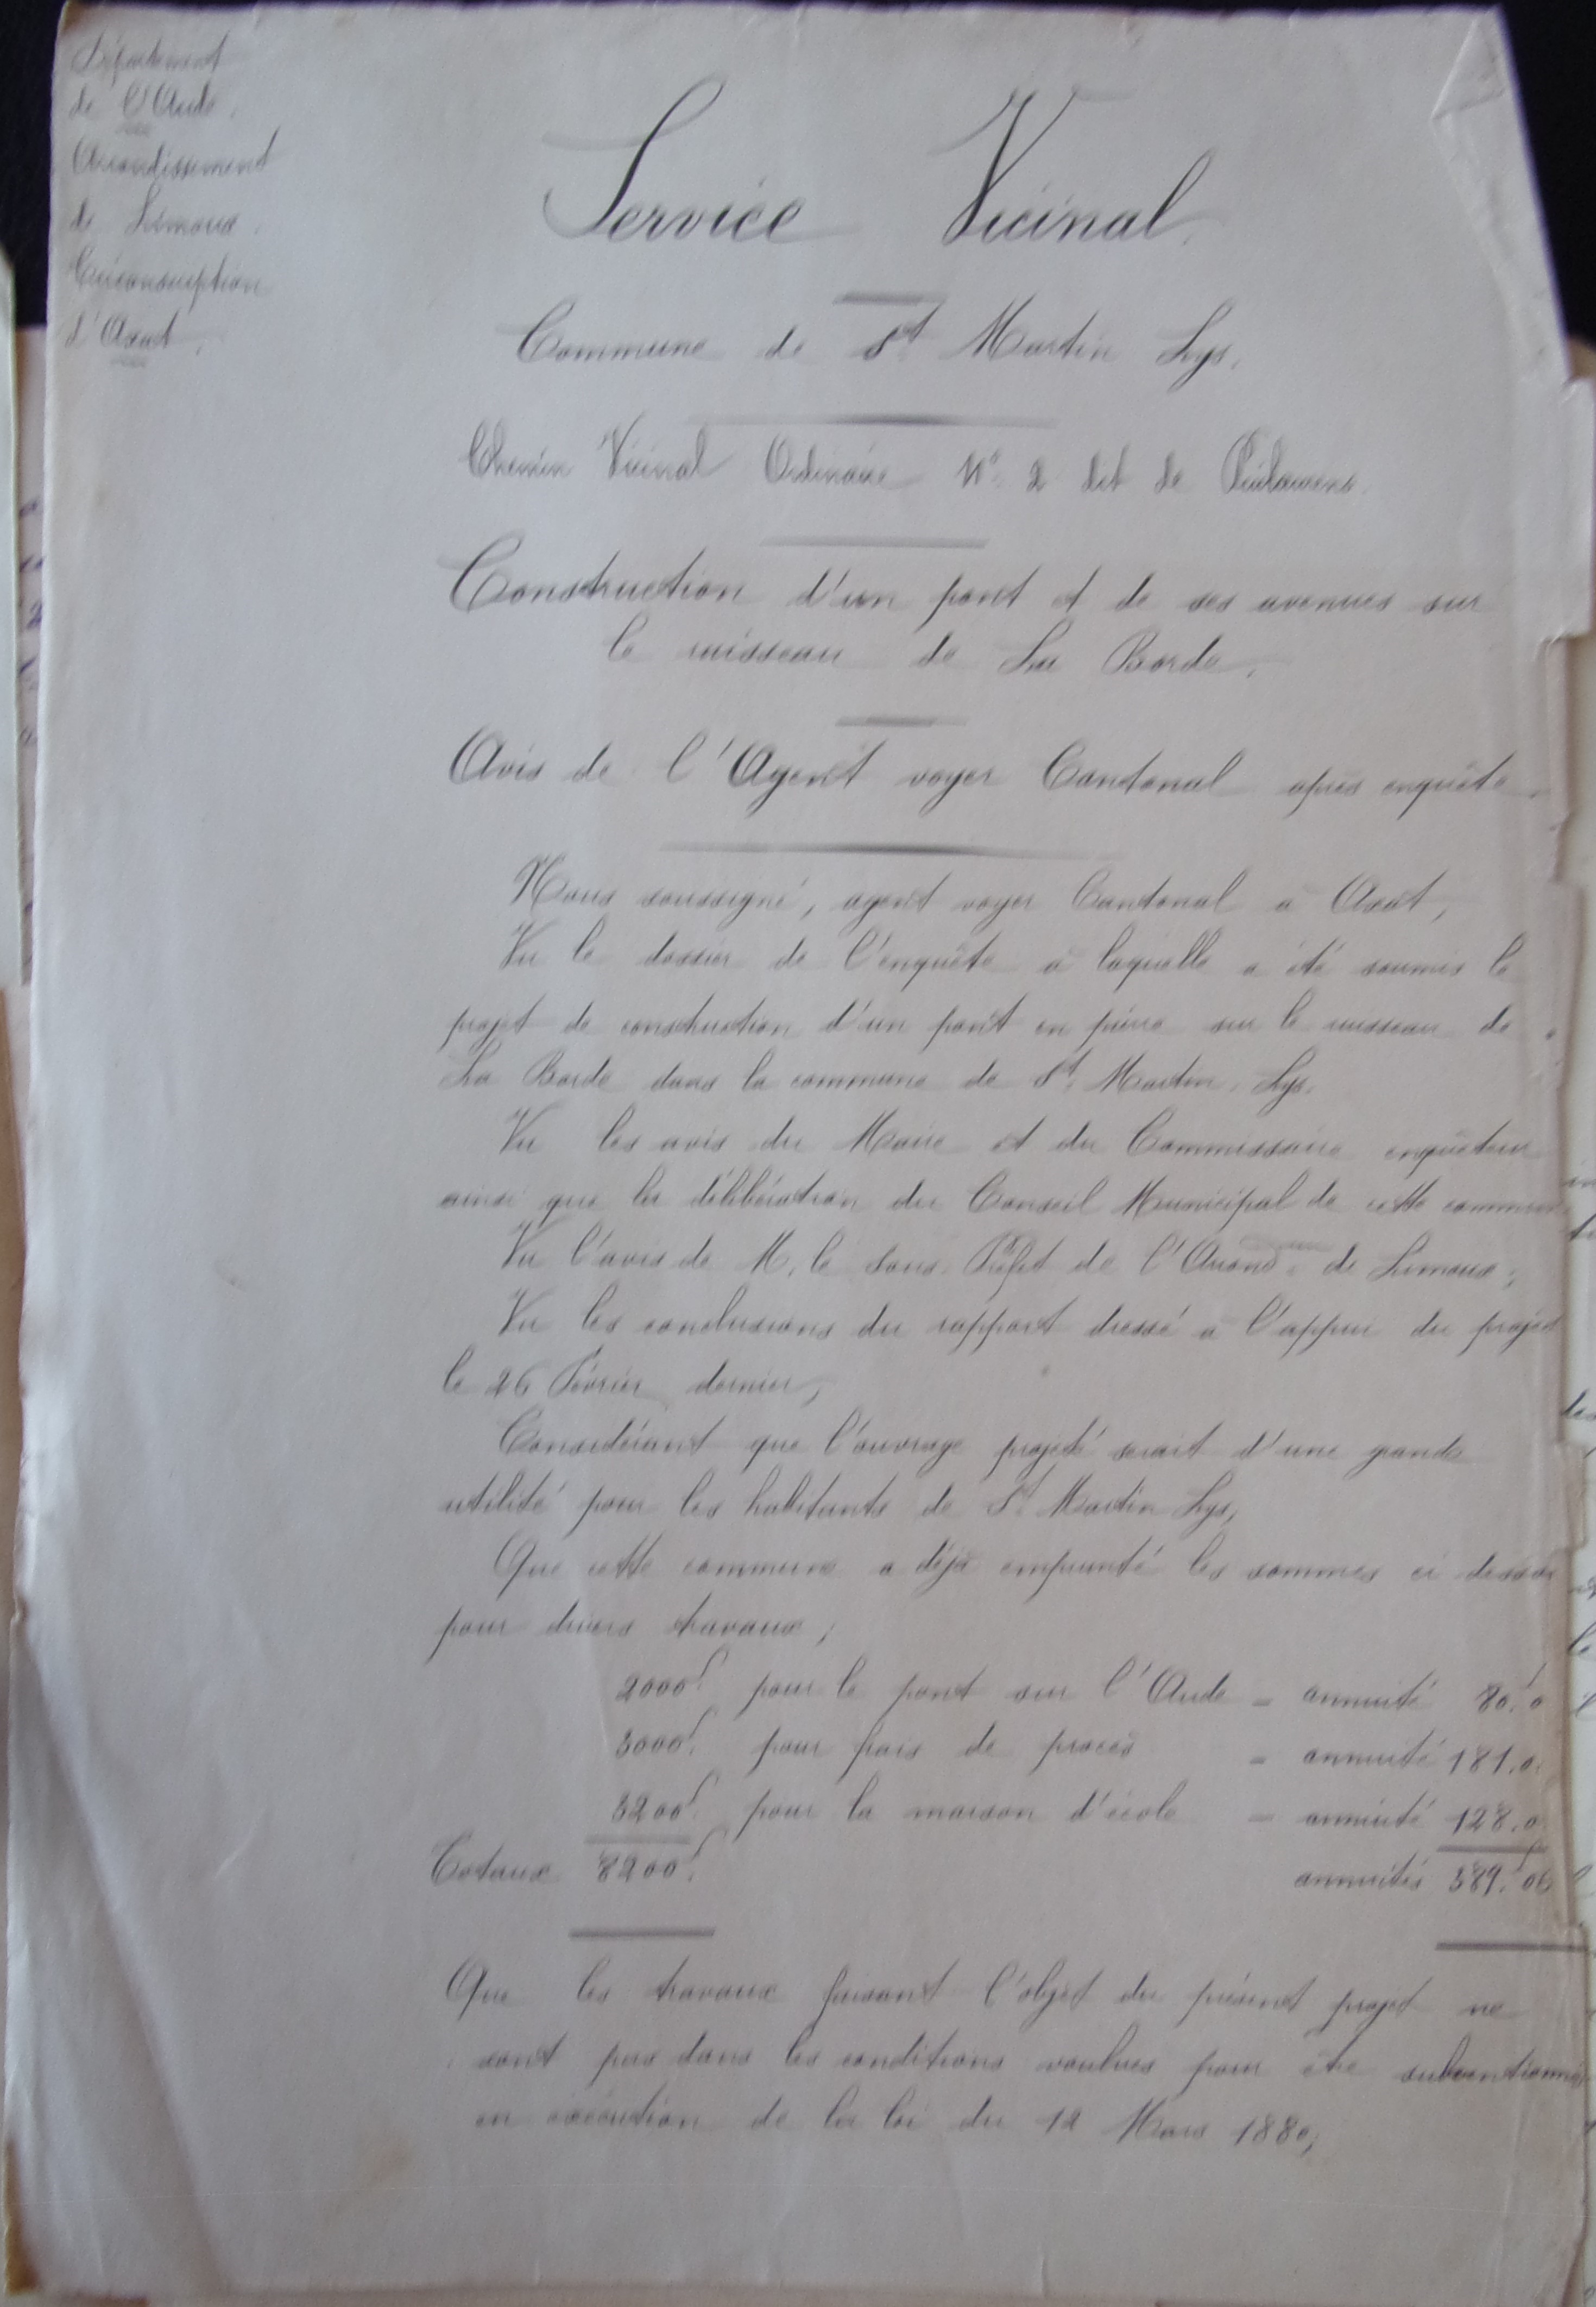 Département
de l'Aude.
Arrondissement
de Limoux.
Circonscription
d'Axat.
Service Vicinal.
Commune de St Martin Lys.
Chemin Vicinal Ordinaire N° 2 dit de
Construction d'un pont et de ses avenues sur
le ruisseau de La Borde.
Avis de l'Agent voyer Cantonal après enquête.
Nous soussigné, agent voyer Cantonal à Axat,
Vu le dossier de l'enquête à laquelle a été soumis le
projet de construction d'un pont en pierre sur le ruisseau de
La Borde dans la commune de St Martin Lys.
Vu les avis du Maire et du Commissaire enquêteur
ainsi que la délibération du Conseil Municipal de cette commune
Vu l'avis de M. le Sous Préfet de l'Arrond. de Limoux;
Vu les conclusions du rapport dressé à l'appui du projet
le 26 Février dernier,
Considérant que l'ouvrage projeté serait d'une grande
utilité pour les habitants de St Martin Lys,
Que cette commune a déjà emprunté les sommes ci dessous
pour divers travaux;
2000f. pour le pont sur l'Aude = annuité 80.f0
3000f. pour frais de procès = annuité 181.0
3200f. pour la maison d'école = annuité 128.0
Totaux 8200f. annuités 389.f00
Que les travaux faisant l'objet du présent projet ne
sont pas dans les conditions voulues pour être subventionnés
en exécution de la loi du 12 Mars 1880;